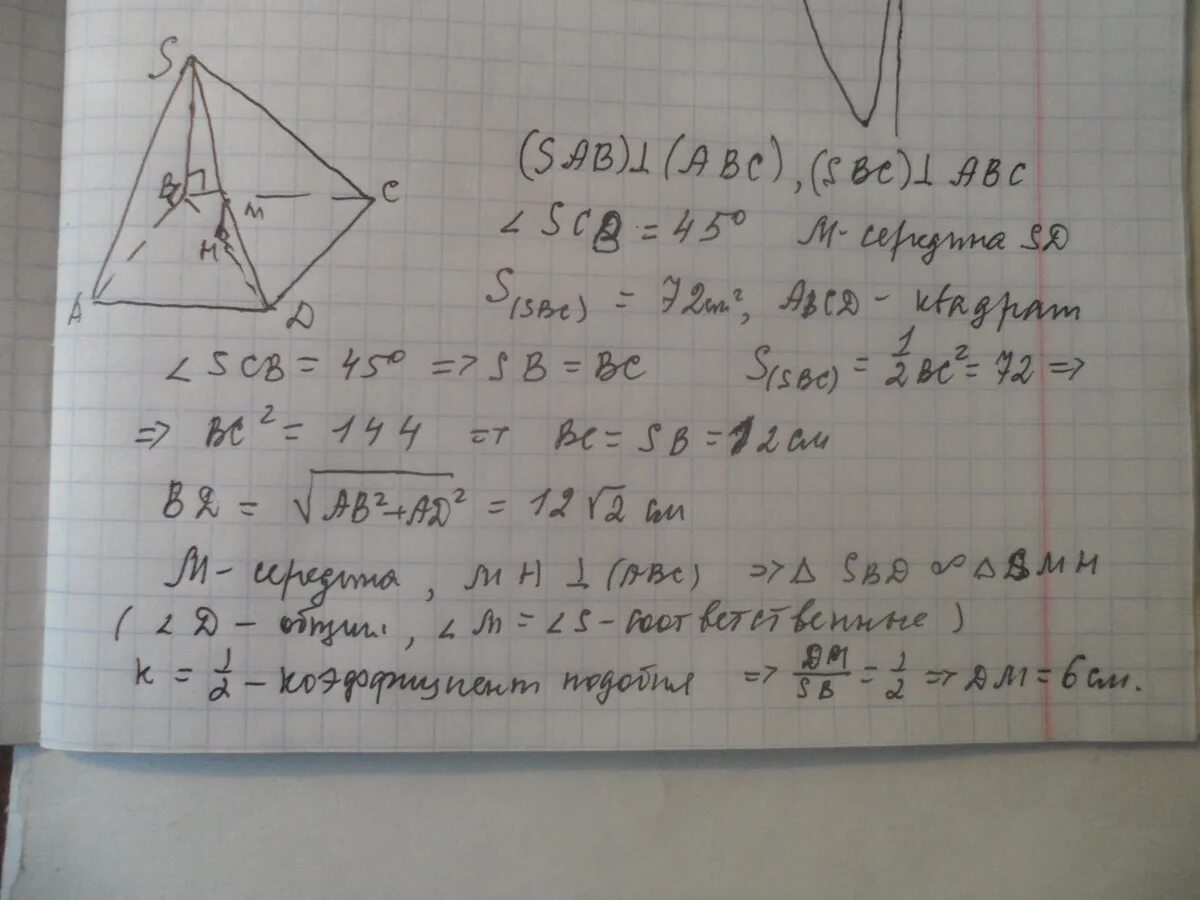 S
B
M
C
H
A
D
(SAB)⊥(ABC), (SBC)⊥ABC
∠SCB = 45° M-середина SD
S(SBC) = 72см², ABCD - квадрат
∠SCB = 45° => SB = BC S(SBC) = 1/2 BC² = 72 =>
=> BC² = 144 => BC = SB = 12 см
BD = √AB²+AD² = 12√2 см
M - середина, MH ⊥ (ABC) => Δ SBD ∞ Δ MH
( ∠D - общий, ∠M = ∠S - соответственные )
k = 1/2 - коэффициент подобия => DM/SB = 1/2 => DM = 6 см.